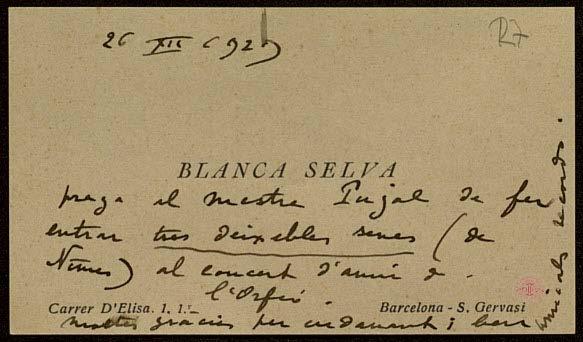 26 XII 192
R7
BLANCA SELVA
prega al mestre Pujol de fer
entrar tres deixebles seves (de
Nimes) al concert d'avui de
l'Orfeó.
Carrer D'Elisa. 1. 1.º Barcelona - S. Gervasi
moltes gracies per endavant i ben
amicals records.